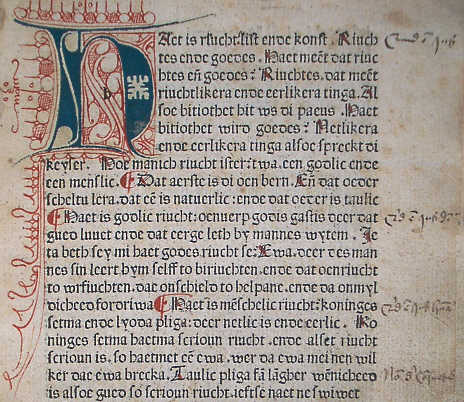 Haet is riucht: list ende konst. Riuch
tes ende goedes. Haet meēt dat riuc
htes eñ goedes: Riuchtes. dat meēt
riuchtlikera ende eerlikera tinga. Al
soe bitiothet hit ws di paeus. Haet
bitiothet wird goedes: Netlikera
ende eerlikera tinga alsoe spreckt di
keyser. Hoe manich riucht ister: twa. een goolic ende
een menslic. Dat aerste is di ocn bern. Eñ dat oeder
scheltu lera. dat cē is natuerlic: ende dat oeder is taulic
Haet is goolic riucht: oenuerp godis gastis deer dat
gued luuet ende dat eerge leth by mannes wytem. Je
ta beth sey mi haet godes riucht se: Ewa. deer des man
nes sin leert hym selff to biriuchten. ende dat oenriucht
to wrfiuchten. dat onschield to helpane. ende da onmyl
dicheed fordriwa Haet is mēschelic riucht: koninges
setma ende lyoda pliga: deer netlic is ende eerlic. Ko
ninges setma haetma scrioun riucht. ende alset riucht
scrioun is. so haetmet cē ewa. wer da ewa mei nen wil
ker dae ewa brecka. Taulic pliga fā lāgher wēnicheed
is alsoe gued so scrioun riucht. ieftse naet nes wiwet